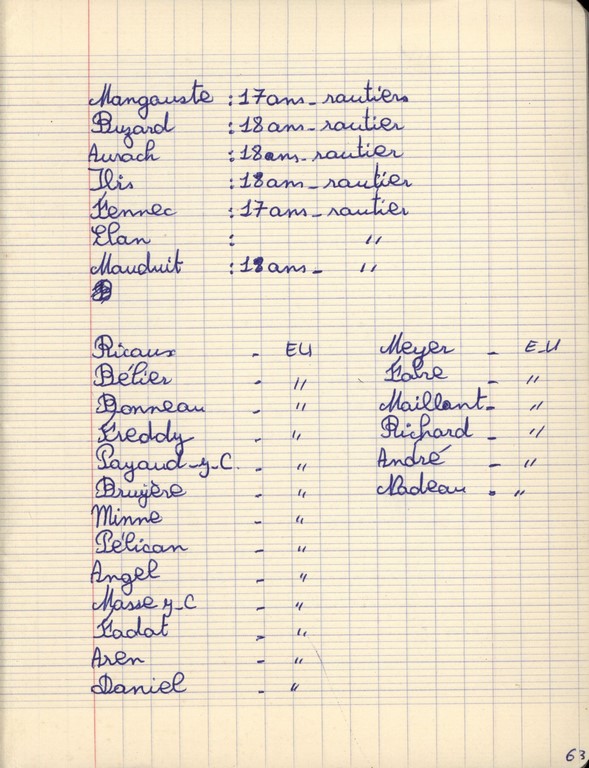 Mangouste : 17 ans - routiers
Buzard : 18 ans - routier
Aurach : 18 ans - routier
Ibis : 18 ans - routier
Fennec : 17 ans - routier
Elan : "
Mauduit : 18 ans - "
Ricaux - EU
Bélier - "
Bonneau - "
Freddy - "
Payaud - y - C. - "
Bruyère - "
Minne - "
Pélican - "
Angel - "
Masse y - C - "
Fadat - "
Aren - "
Daniel - "
Meyer - E-U
Fabre - "
Maillant - "
Richard - "
André - "
Nadeau - "
63